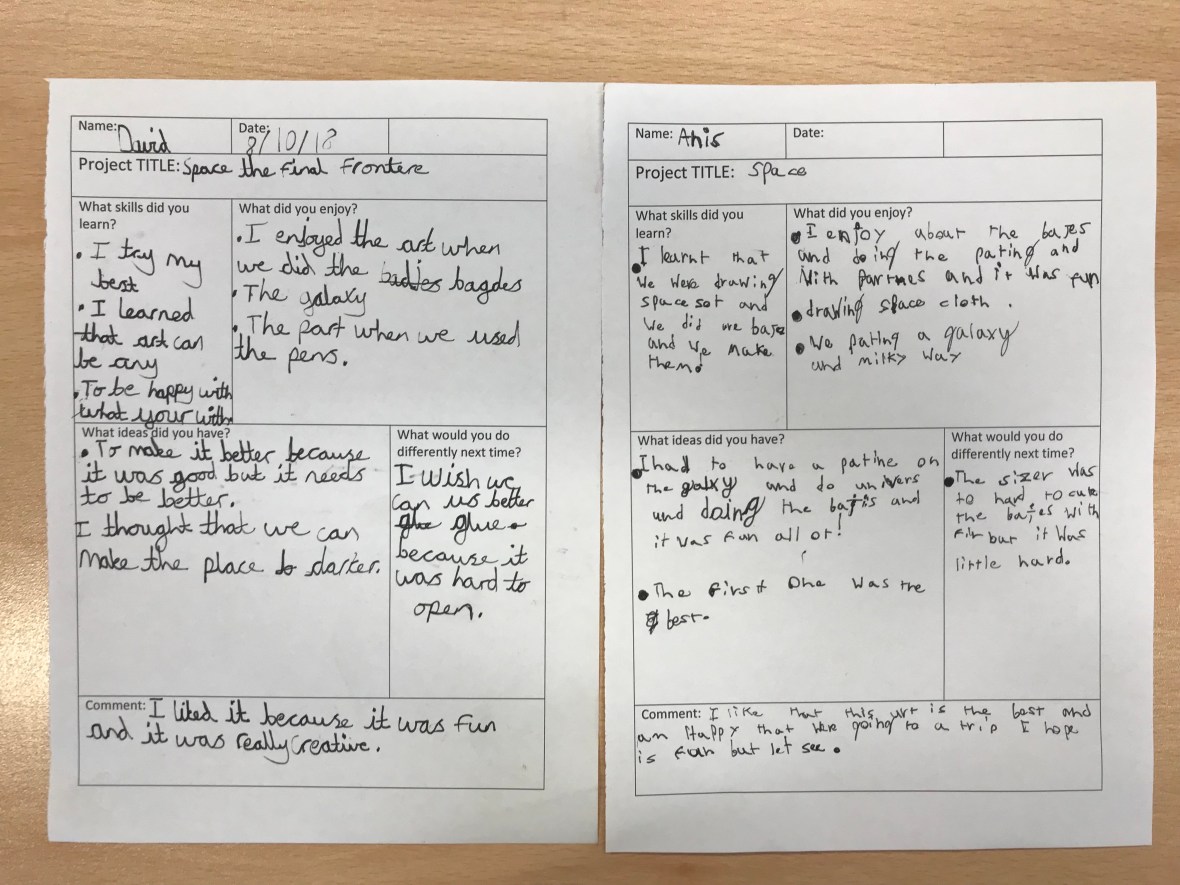 Name: David
Date: 8/10/18
Project TITLE: Space the Final Frontere
What skills did you
learn?
• I try my
best
• I learned
that art can
be any
• To be happy with
what your with
What did you enjoy?
• I enjoyed the art when
we did the badjes bagdes
• The galaxy
• The part when we used
the pens.
What ideas did you have?
• To make it better because
it was good but it needs
to be better.
I thought that we can
make the place to darker.
What would you do
differently next time?
I wish we
can us better
glue glue
because it
was hard to
open.
Comment: I liked it because it was fun
and it was really creative.
Name: Anis
Date:
Project TITLE: Space
What skills did you
learn?
• I learnt that
we were drawing
space sot and
we did we baje
and we make
them.
What did you enjoy?
• I enjoy about the bajes
and doing the pating and
with partnes and it was fun
• drawing space cloth.
• We pating a galaxy
and milky way
What ideas did you have?
• I had to have a patine on
the galaxy and do univers
and doing the bajis and
it was fun all of!
• The first one was the
best.
What would you do
differently next time?
• The sizer was
to hard to cute
the bajes with
but it was
little hard.
Comment: I like that this art is the best and
an Happy that were going to a trip I hope
is fun but let see.